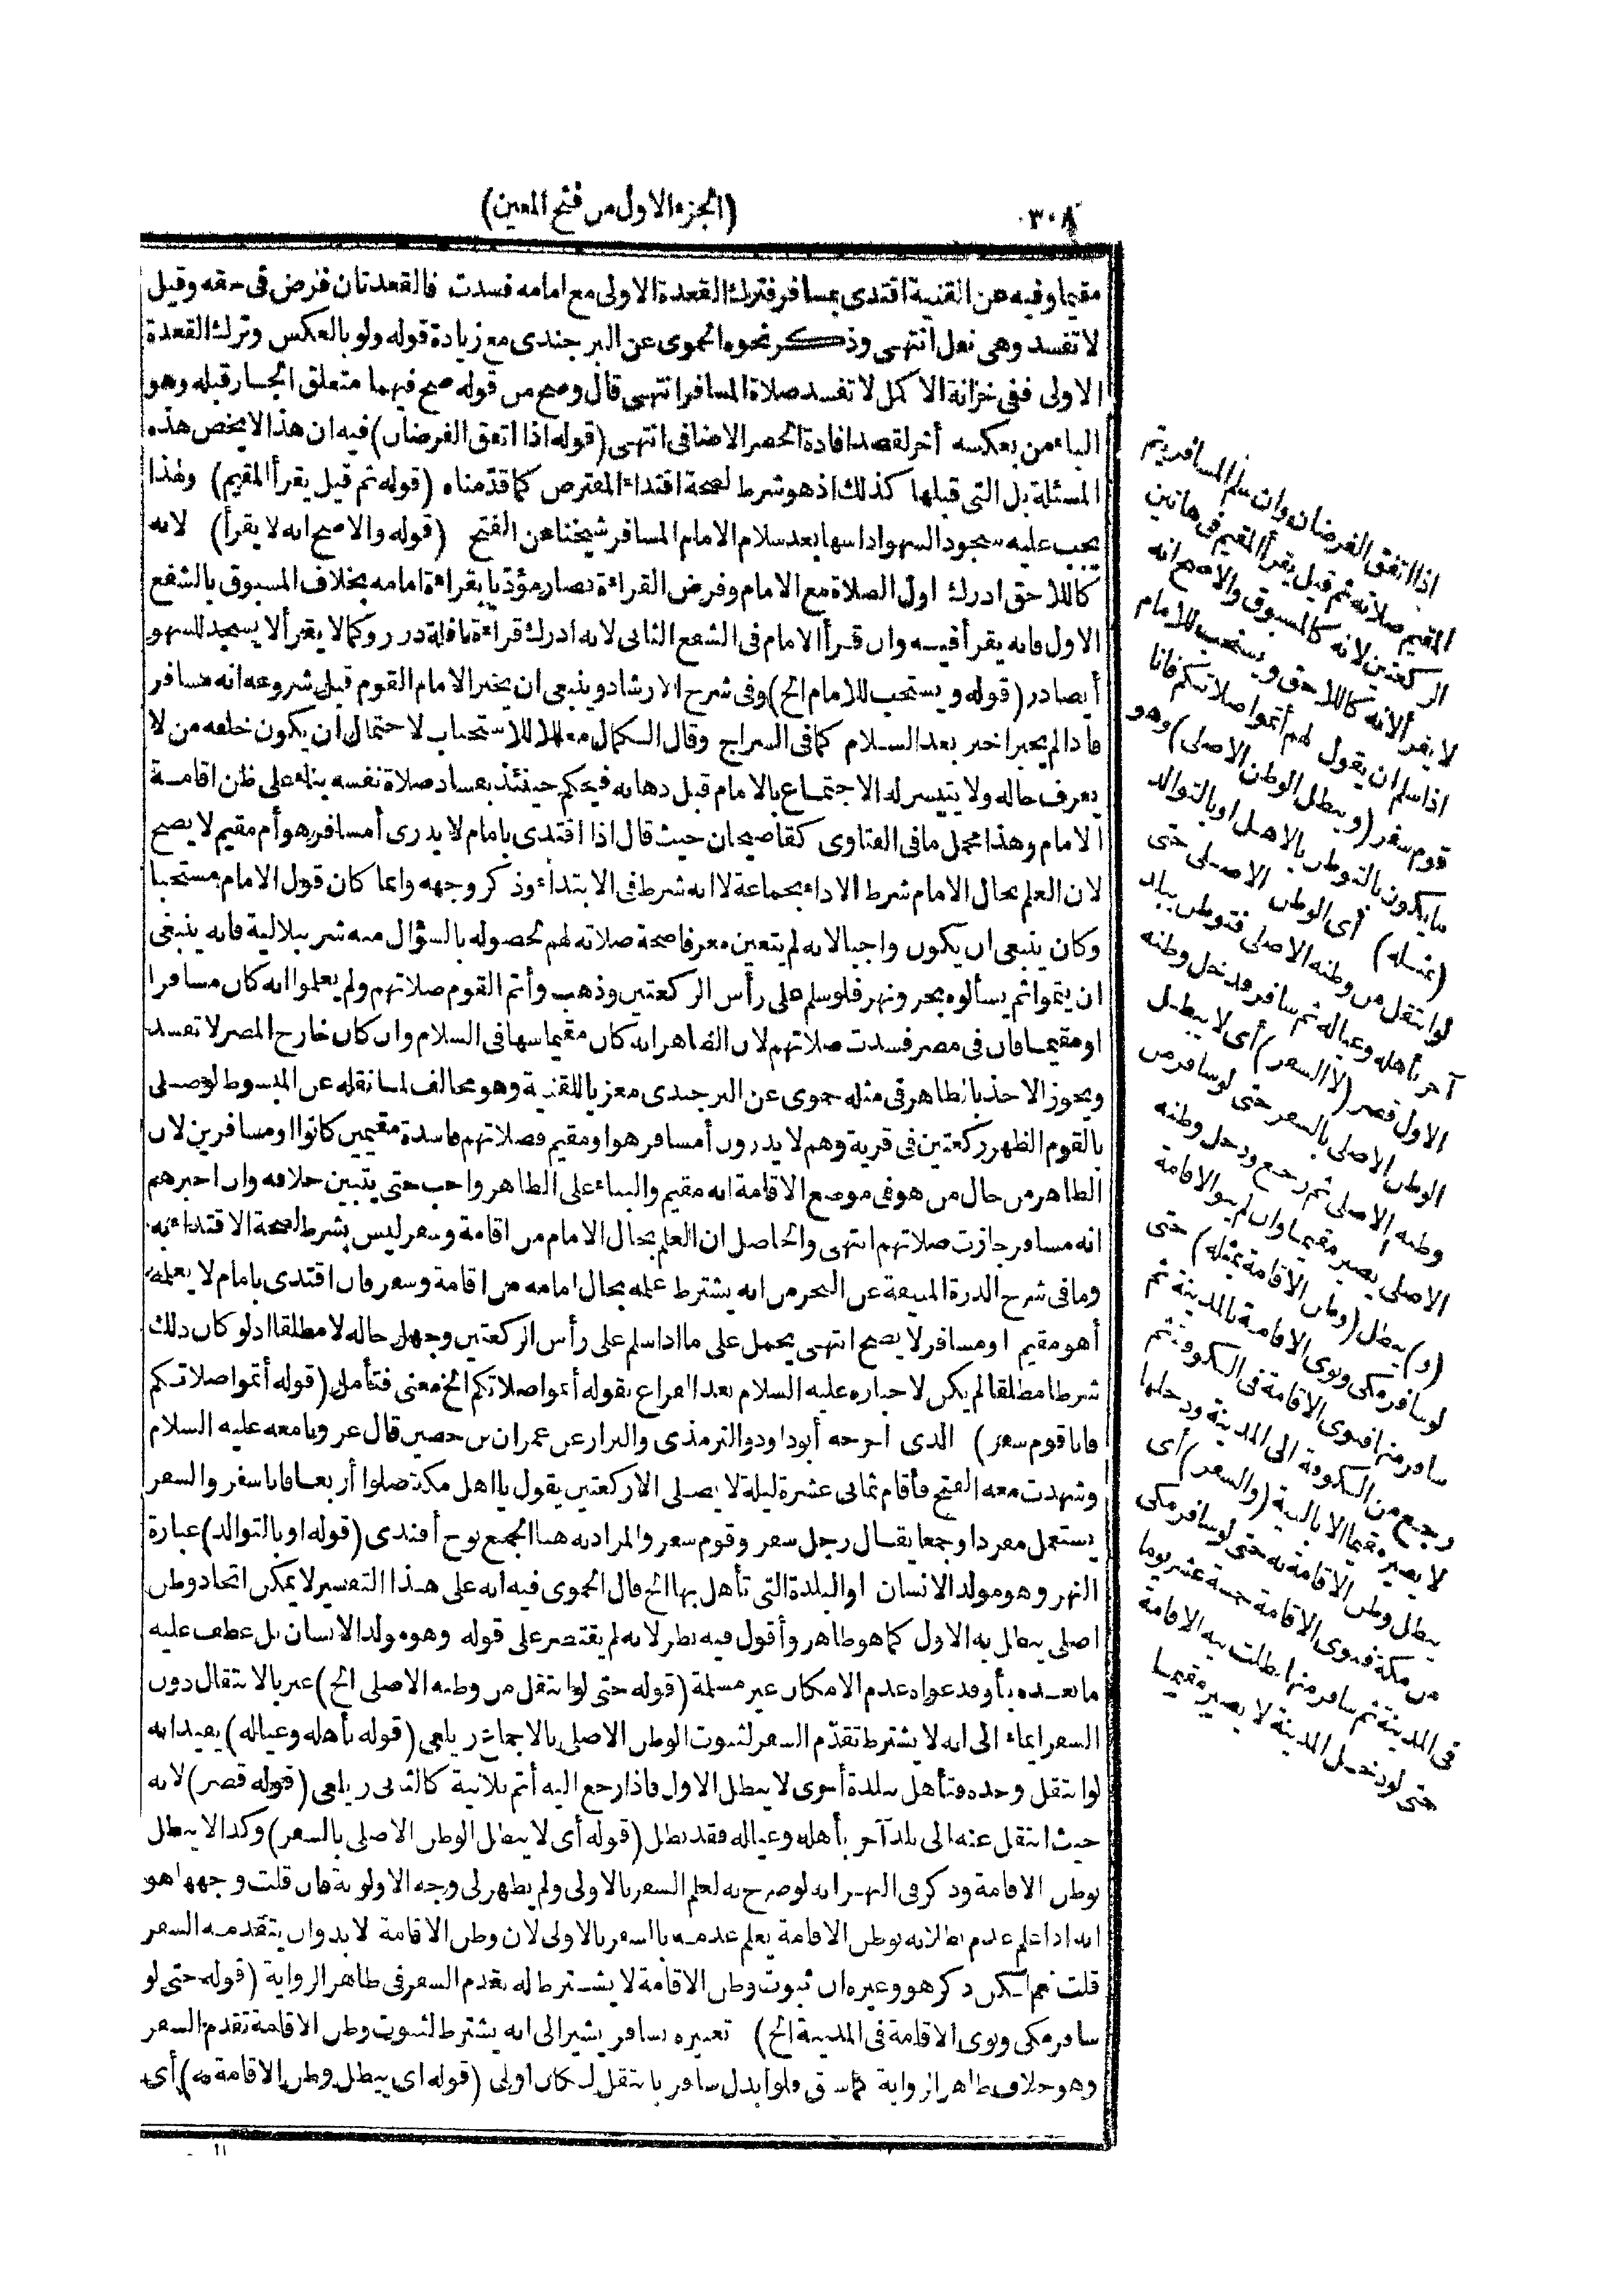 ٣٠٨
(الجزء الاول من فتح المعين)
مقيما وفيه عن القنية اقتدى بمسافر فترك القعدة الاولى مع امامه فسدت فالقعدتان فرض في حقه وقيل
لا تفسد وهي نفل انتهى وذكر نحوه الحموي عن البرجندي مع زيادة قوله ولو بالعكس وترك القعدة
الاولى ففي خزانة الاكمل لا تفسد صلاة المسافر انتهى قال وصح من قوله صح فيهما متعلق الجار قبله وهو
الباء من بعكسه أخر لقصد افادة الحصر الاضافي انتهى (قوله اذا اتفق الفرضان) فيه ان هذا لا يخص هذه
المسئلة بل التي قبلها كذلك اذ هو شرط لصحة اقتداء المفترض كما قدمناه (قوله ثم قيل يقرأ المقيم) ولهذا
يجب عليه سجود السهو اذا سها بعد سلام الامام المسافر شيخنا عن الفتح (قوله والاصح انه لا يقرأ) لانه
كاللاحق ادرك اول الصلاة مع الامام وفرض القراءة صار مؤدّيا بقراءة امامه بخلاف المسبوق بالشفع
الاول فانه يقرأ فيه وان قرأ الامام في الشفع الثاني لانه ادرك قراءة نافلة درر وكما لا يقرأ لا يسجد للسهو
أيضا در (قوله ويستحب للامام الخ) وفي شرح الارشاد وينبغي ان يخبر الامام القوم قبل شروعه انه مسافر
فاذا لم يخبر اخبر بعد السلام كما في السراج وقال الكمال معللا للاستحباب لاحتمال ان يكون خلفه من لا
يعرف حاله ولا يتيسر له الاجتماع بالامام قبل ذهابه فيحكم حينئذ بفساد صلاة نفسه بناء على ظن اقامة
الامام وهذا محمل ما في الفتاوى كقاضيخان حيث قال اذا اقتدى بامام لا يدرى أمسافر هو أم مقيم لا يصح
لان العلم بحال الامام شرط الاداء بجماعة لا انه شرط في الابتداء وذكر وجهه وانما كان قول الامام مستحبا
وكان ينبغي ان يكون واجبا لانه لم يتعين معرفا صحة صلاته لهم لحصوله بالسؤال منه شرنبلالية فانه ينبغي
ان يتموا ثم يسألوه بحر ونهر فلو سلم على رأس الركعتين وذهب وأتم القوم صلاتهم ولم يعلموا انه كان مسافرا
او مقيما فان في مصر فسدت صلاتهم لان الظاهر انه كان مقيما سها في السلام وان كان خارج المصر لا تفسد
ويجوز الاخذ بالظاهر في مثله حموي عن البرجندي معزيا للقنية وهو مخالف لما نقله عن المبسوط لو صلى
بالقوم الظهر ركعتين في قرية وهم لا يدرون أمسافر هو او مقيم فصلاتهم فاسدة مقيمين كانوا او مسافرين لان
الظاهر من حال من هو في موضع الاقامة انه مقيم والبناء على الظاهر واجب حتى يتبين خلافه وان اخبرهم
انه مسافر جازت صلاتهم انتهى والحاصل ان العلم بحال الامام من اقامة وسفر ليس بشرط لصحة الاقتداء به
وما في شرح الدرة المنيفة عن البحر من انه يشترط علمه بحال امامه من اقامة وسفر فان اقتدى بامام لا يعلم
أهو مقيم او مسافر لا يصح انتهى يحمل على ما اذا سلم على رأس الركعتين وجهل حاله لا مطلقا اذ لو كان ذلك
شرطا مطلقا لم يكن لاخباره عليه السلام بعد الفراغ بقوله أتموا صلاتكم الخ معنى فتأمل (قوله أتموا صلاتكم
فانا قوم سفر) الذي اخرجه أبو داود والترمذي والبزار عن عمران بن حصين قال غزونا معه عليه السلام
وشهدت معه الفتح فأقام ثماني عشرة ليلة لا يصلي الا ركعتين يقول يا اهل مكة صلوا أربعا فانا سفر والسفر
يستعمل مفردا وجمعا يقال رجل سفر وقوم سفر والمراد به هنا الجمع نوح أفندي (قوله او بالتوالد) عبارة
النهر وهو مولد الانسان او البلدة التي تأهل بها الخ قال الحموي فيه انه على هذا التفسير لا يمكن اتحاد وطن
اصلي يبطل به الاول كما هو ظاهر وأقول فيه نظر لانه لم يقتصر على قوله وهو مولد الانسان بل عطف عليه
ما بعده بأو فدعواه عدم الامكان غير مسلمة (قوله حتى لو انتقل من وطنه الاصلي الخ) عبر بالانتقال دون
السفر ايماء الى انه لا يشترط تقدّم السفر لثبوت الوطن الاصلي بالاجماع زيلعي (قوله بأهله وعياله) يفيد انه
لو انتقل وحده وتأهل ببلدة أخرى لا يبطل الاول فاذا رجع اليه أتم بلا نية كالثاني زيلعي (قوله قصر) لانه
حيث انتقل عنه الى بلد آخر بأهله وعياله فقد بطل (قوله أي لا يبطل الوطن الاصلي بالسفر) وكذا لا يبطل
بوطن الاقامة وذكر في النهر انه لو صرح به لعلم السفر بالاولى ولم يظهر لي وجه الاولوية فان قلت وجهها هو
انه اذا علم عدم بطلانه بوطن الاقامة يعلم عدمه بالسفر بالاولى لان وطن الاقامة لا بد وان يتقدمه السفر
قلت نعم لكن ذكر هو وغيره ان ثبوت وطن الاقامة لا يشترط له تقدم السفر في ظاهر الرواية (قوله حتى لو
سافر مكي ونوى الاقامة في المدينة الخ) تعبيره بسافر يشير الى انه يشترط لثبوت وطن الاقامة تقدم السفر
وهو خلاف ظاهر الرواية كما سبق فلو أبدل سافر بانتقل لكان اولى (قوله اي يبطل وطن الاقامة به) أي
اذا اتفق الفرضان وان سلم المسافر يتم
المقيم صلاته ثم قيل يقرأ المقيم في هاتين
الركعتين لانه كالمسبوق والاصح انه
لا يقرأ لانه كاللاحق ويستحب للامام
اذا سلم ان يقول لهم أتموا صلاتكم فانا
قوم سفر (ويبطل الوطن الاصلي) وهو
ما يكون بالتوطن بالاهل او بالتوالد
(بمثله) أي الوطن الاصلي حتى
لو انتقل من وطنه الاصلي فتوطن ببلد
آخر بأهله وعياله ثم سافر ودخل وطنه
الاول قصر (لا السفر) أي لا يبطل
الوطن الاصلي بالسفر حتى لو سافر من
وطنه الاصلي ثم رجع ودخل وطنه
الاصلي يصير مقيما وان لم ينو الاقامة
(و) يبطل (وطن الاقامة بمثله) حتى
لو سافر مكي ونوى الاقامة بالمدينة ثم
سافر منها فنوى الاقامة في الكوفة ثم
رجع من الكوفة الى المدينة ودخلها
لا يصير مقيما الا بالنية (والسفر) أي
يبطل وطن الاقامة به حتى لو سافر مكي
من مكة فنوى الاقامة خمسة عشر يوما
في المدينة ثم سافر منها بطلت نية الاقامة
حتى لو دخل المدينة لا يصير مقيما